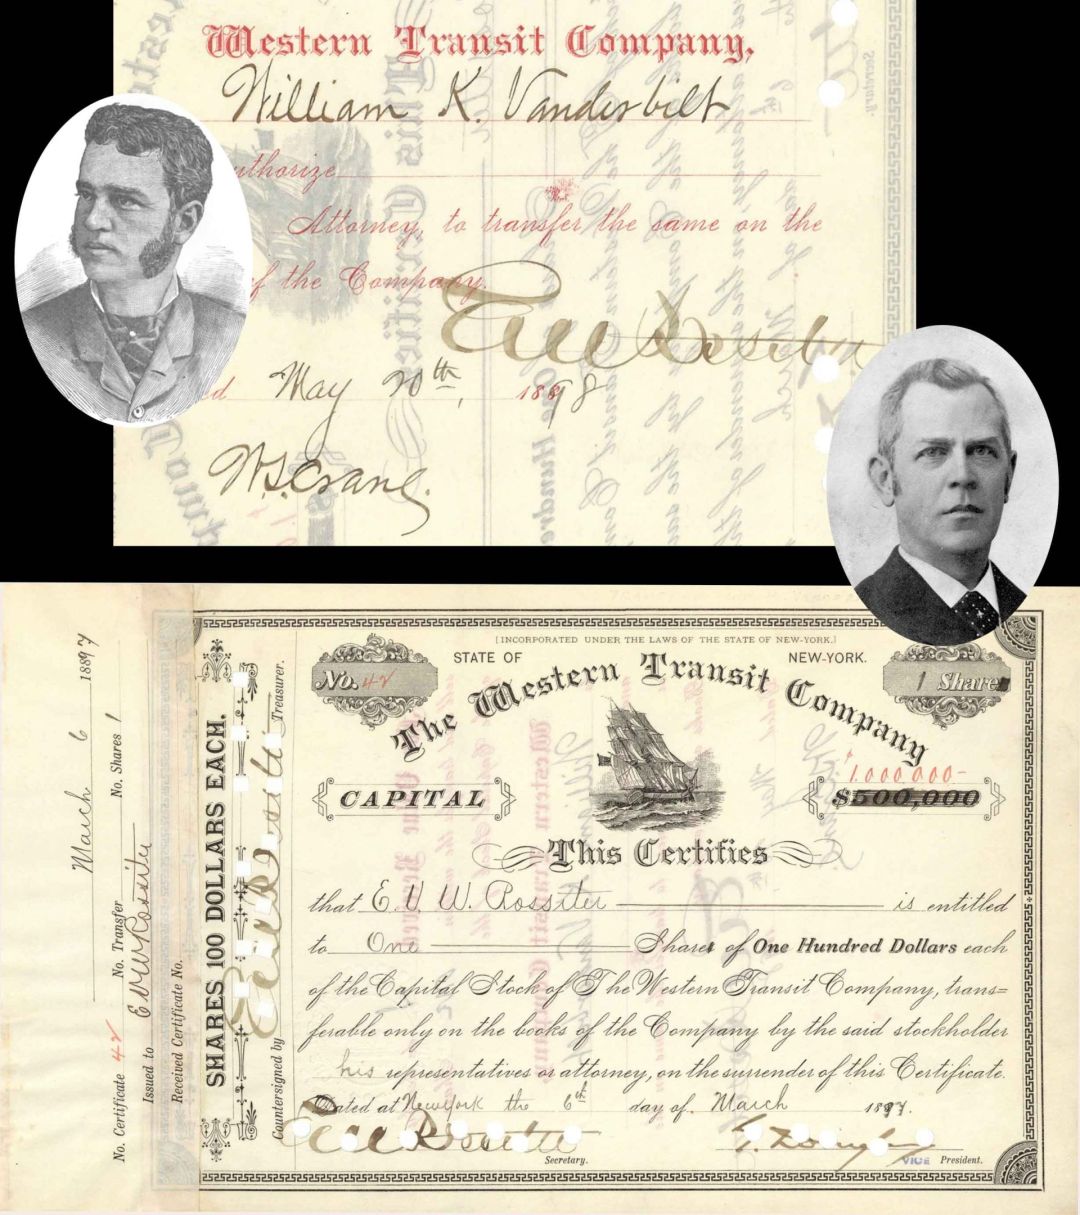 Western Transit Company,
William K. Vanderbilt
uthorize
Attorney, to transfer the same on the
of the Company.
E V W Rossiter
d May 20th, 1898
W.S. Crane.
[INCORPORATED UNDER THE LAWS OF THE STATE OF NEW-YORK.]
STATE OF NEW-YORK.
No. 42
1 Share
The Western Transit Company
CAPITAL
$1,000,000-
$500,000
This Certifies
that E. V. W. Rossiter is entitled
to One Shares of One Hundred Dollars each
of the Capital Stock of The Western Transit Company, trans=
ferable only on the books of the Company by the said stockholder
his representatives or attorney, on the surrender of this Certificate.
Dated at New York the 6th day of March 1897.
E V W Rossiter
Secretary.
VICE President.
SHARES 100 DOLLARS EACH.
Countersigned by E V W Rossiter Treasurer.
No. Certificate 42 March 6 1897
No. Transfer No. Shares 1
Issued to E V W Rossiter
Received Certificate No.